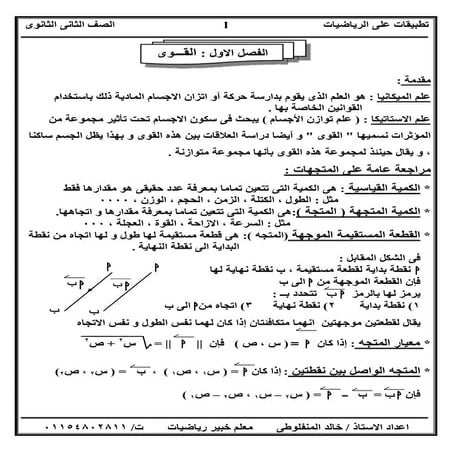 تطبيقات على الرياضيات 1 الصف الثانى الثانوى
الفصل الاول : القـــوى
مقدمة :
علم الميكانيا : هو العلم الذى يقوم بدارسة حركة أو اتزان الاجسام المادية ذلك باستخدام
القوانين الخاصة بها .
علم الاستاتيكا : ( علم توازن الأجسام ) يبحث فى سكون الاجسام تحت تأثير مجموعة من
المؤثرات نسميها " القوى " و أيضا دراسة العلاقات بين هذه القوى و بهذا يظل الجسم ساكنا
، و يقال حينئذ لمجموعة هذه القوى بأنها مجموعة متوازنة .
مراجعة عامة على المتجهات :
* الكمية القياسية : هى الكمية التى تتعين تماما بمعرفة عدد حقيقى هو مقدارها فقط
مثل : الطول ، الكتلة ، الزمن ، الحجم ، الوزن ، ٠٠٠٠
* الكمية المتجهة ( المتجة ) :هى الكمية التى تتعين تماما بمعرفة مقدارها و اتجاهها.
مثل : السرعة ، الازاحة ، القوة ، العجلة ، ٠٠٠٠
* القطعة المستقيمة الموجهة (المتجه ): هى قطعة مستقيمة لها طول و لها اتجاه من نقطة
البداية الى نقطة النهاية .
فى الشكل المقابل :
أ نقطة بداية لقطعة مستقيمة ، ب نقطة نهاية لها
فإن القطعة الموجهة من أ الى ب
يرمز لها بالرمز أب تتحدد بــ :
١) نقطة بداية ٢) نقطة نهاية ٣) اتجاه من أ الى ب
أ أ
ب ب
يقال لقطعتين موجهتين انهما متكافئتان إذا كان لهما نفس الطول و نفس الاتجاه
* معيار المتجه : إذا كان أ = ( س ، ص ) فإن || أ || = √س٢ + ص٢
* المتجه الواصل بين نقطتين : إذا كان أ = ( س١ ، ص١ ) ، ب = ( س٢ ، ص٢ )
فإن أب = ب – أ = ( س٢ – س١ ، ص٢ – ص١ )
اعداد الاستاذ / خالد المنفلوطى معلم خبير رياضيات ت/ ٠١١٥٤٨٠٢٨١١